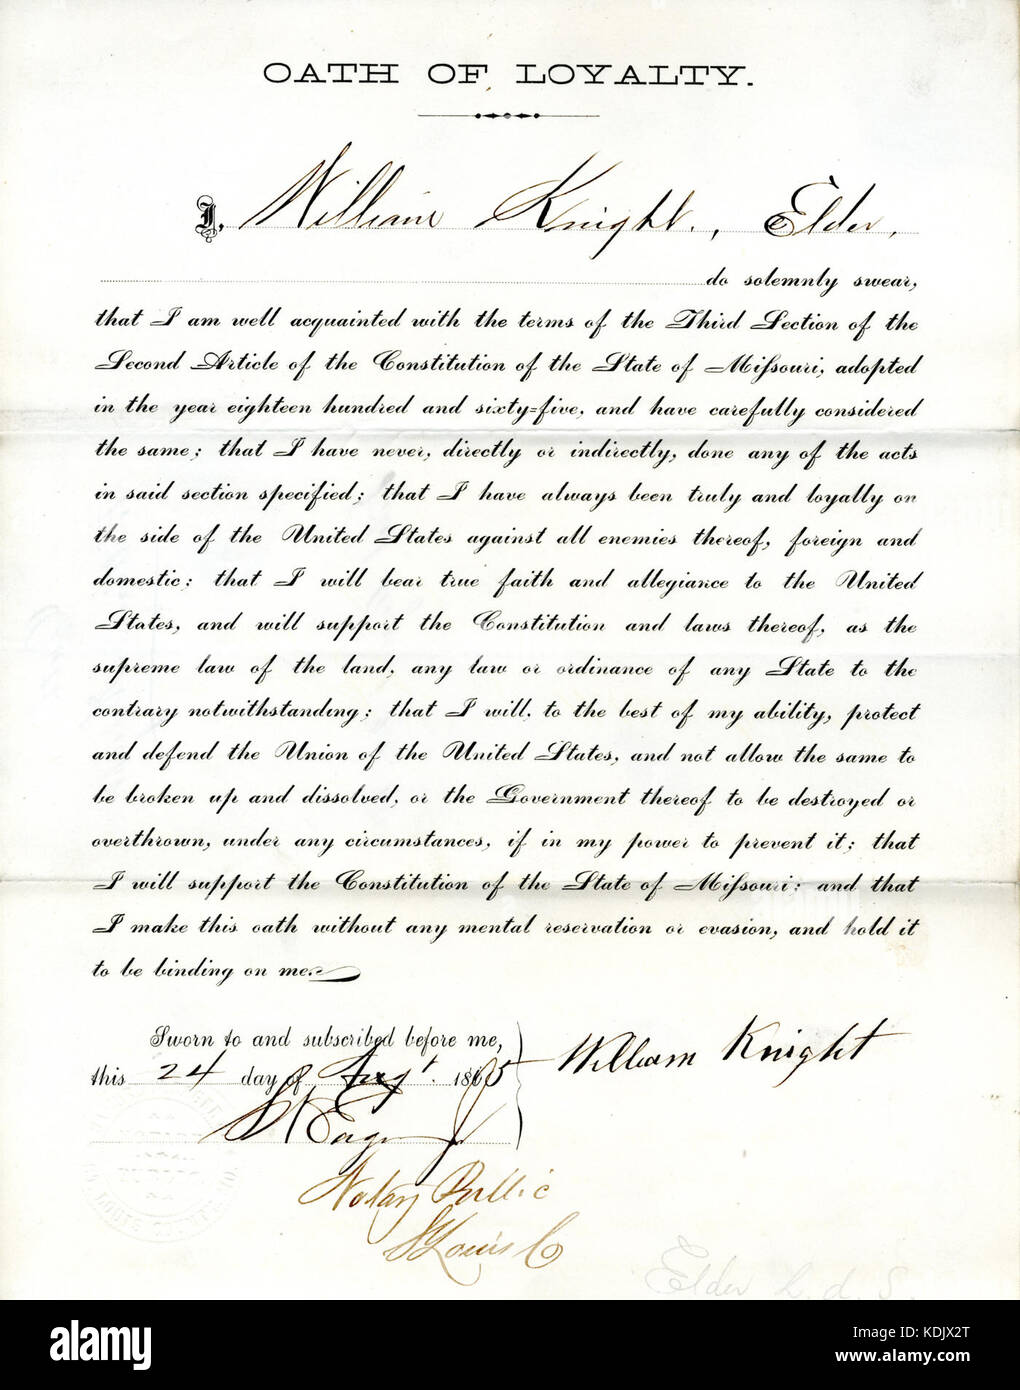 OATH OF LOYALTY.
I, William Knight., Elder,
do solemnly swear,
that I am well acquainted with the terms of the Third Section of the
Second Article of the Constitution of the State of Miſsouri, adopted
in the year eighteen hundred and sixty-five, and have carefully considered
the same; that I have never, directly or indirectly, done any of the acts
in said section specified; that I have always been truly and loyally on
the side of the United States against all enemies thereof, foreign and
domestic; that I will bear true faith and allegiance to the United
States, and will support the Constitution and laws thereof, as the
supreme law of the land, any law or ordinance of any State to the
contrary notwithstanding; that I will, to the best of my ability, protect
and defend the Union of the United States, and not allow the same to
be broken up and dissolved, or the Government thereof to be destroyed or
overthrown, under any circumstances, if in my power to prevent it; that
I will support the Constitution of the State of Miſsouri; and that
I make this oath without any mental reservation or evasion, and hold it
to be binding on me.
Sworn to and subscribed before me,
this 24 day of Augt. 1865
William Knight
Notary Public
St Louis Co
Elder L. d. S.
alamy
Image ID: KDJX2T
www.alamy.com